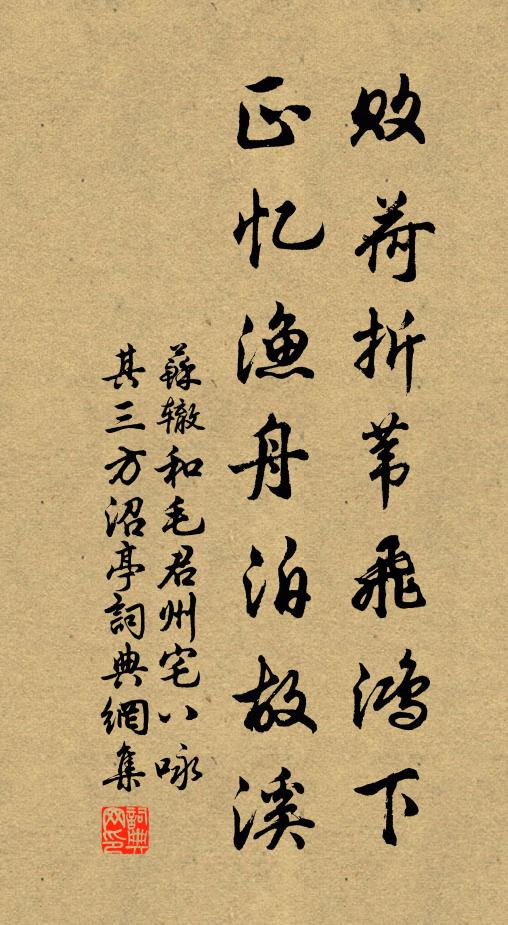 败荷折苇飞鸿下
正忆渔舟泊故溪
蘇辙和毛君州宅八咏
其三方沼亭詞典網集
詞典
网印